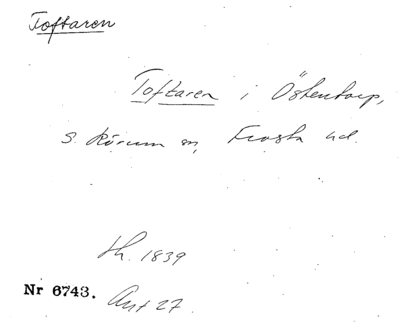 Toftaren
Toftaren i Östentorp,
S. Rörum sn, Frosta hd.
th. 1839
Nr 6743. Ant 27.